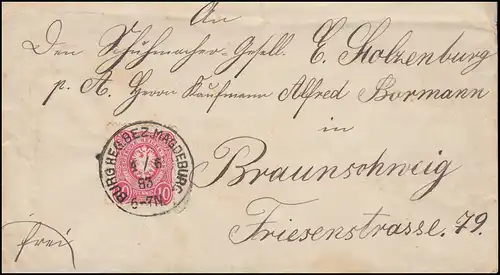 An
Den Schuhmacher-Gesell. E. Stolzenburg
p. A. Herrn Kaufmann Alfred Bormann
in
Braunschweig
Friesenstrasse. 79.
frei
BURG REG. BEZ. MAGDEBURG
4/6
83
6-7N
10